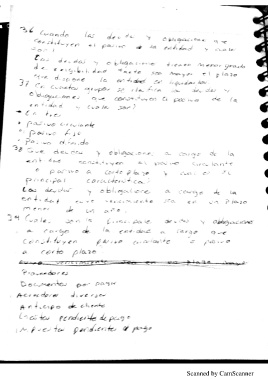 36 Cuando las deudas y obligaciones que
constituyen el pasivo de la entidad y cuales
son?
Las deudas y obligaciones tienen menor grado
de exigibilidad tanto sea mayor el plazo
que dispone la entidad en
37 En cuantos grupos se clasifica las deudas y
obligaciones que constituyen el pasivo de la
entidad y cuales son?
En tres
Pasivo circulante
Pasivo fijo
Pasivo diferido
38 Que deudas y obligaciones a cargo de la
entidad constituyen el pasivo circulante
o pasivo a corto plazo y cual es la
principal caracteristica?
Las deudas y obligaciones a cargo de la
entidad cuyo vencimiento sea en un plazo
menor de un año.
39 Cuales son la principales deudas y obligaciones
a cargo de la entidad a cargo que
constituyen pasivo circulante o pasivo
a corto plazo
Proveedores
Documentos por pagar
Acreedores diversos
Anticipo de cliente
Gastos pendiente de pago
Impuestos pendientes d pago
Scanned by CamScanner